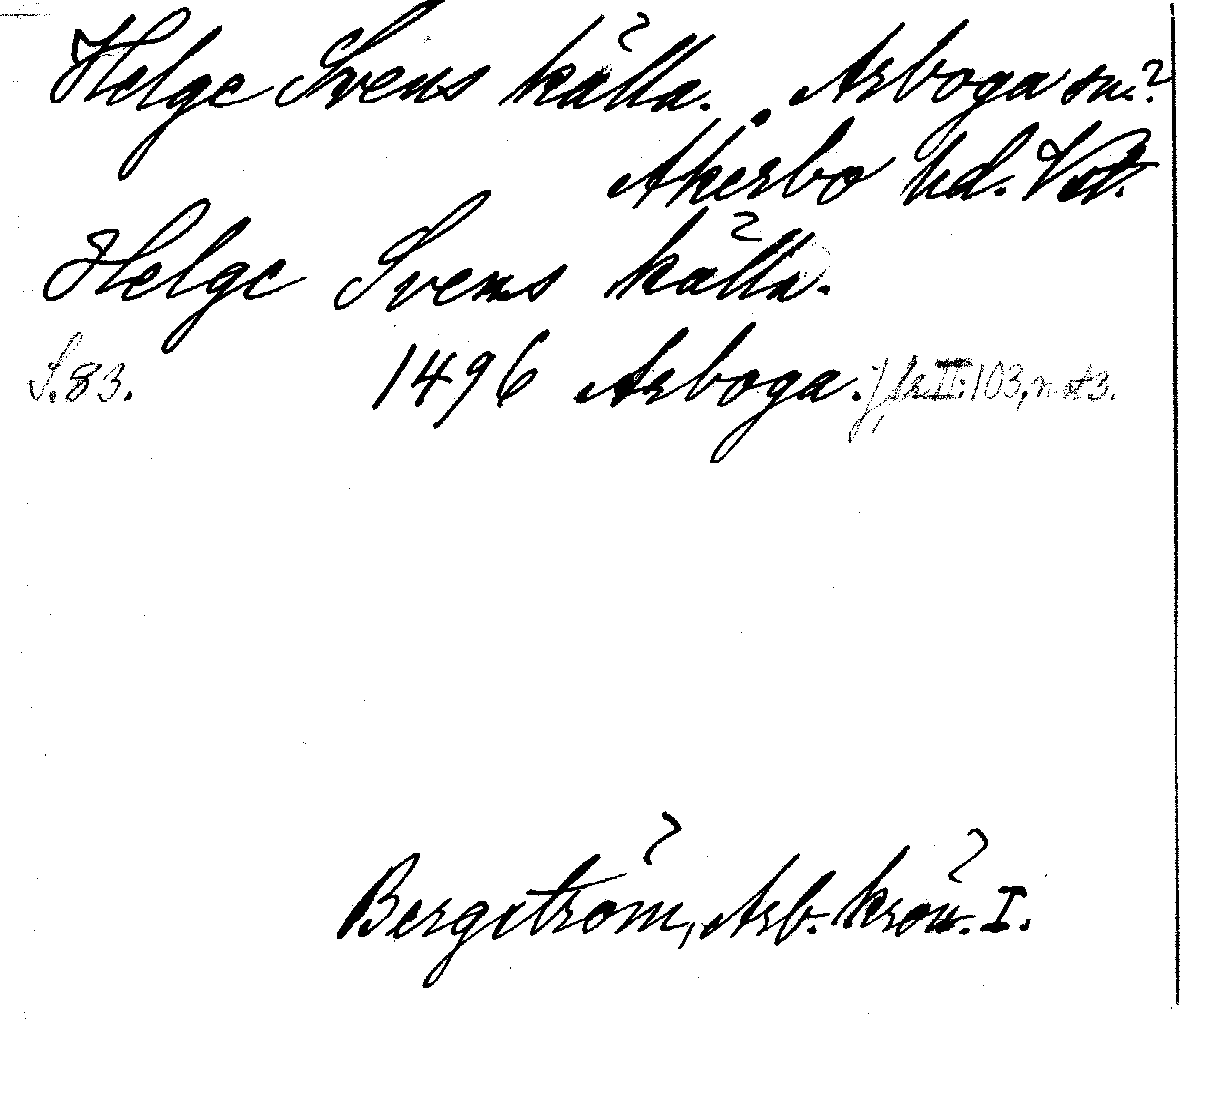 Helge Svens källa. Arboga sn.?
Åkerbo hd. Vstm.
Helge Svens källa.
S. 83. 1496 Arboga. Jfr II: 103, not 3.
Bergström, Arb. krön. I.